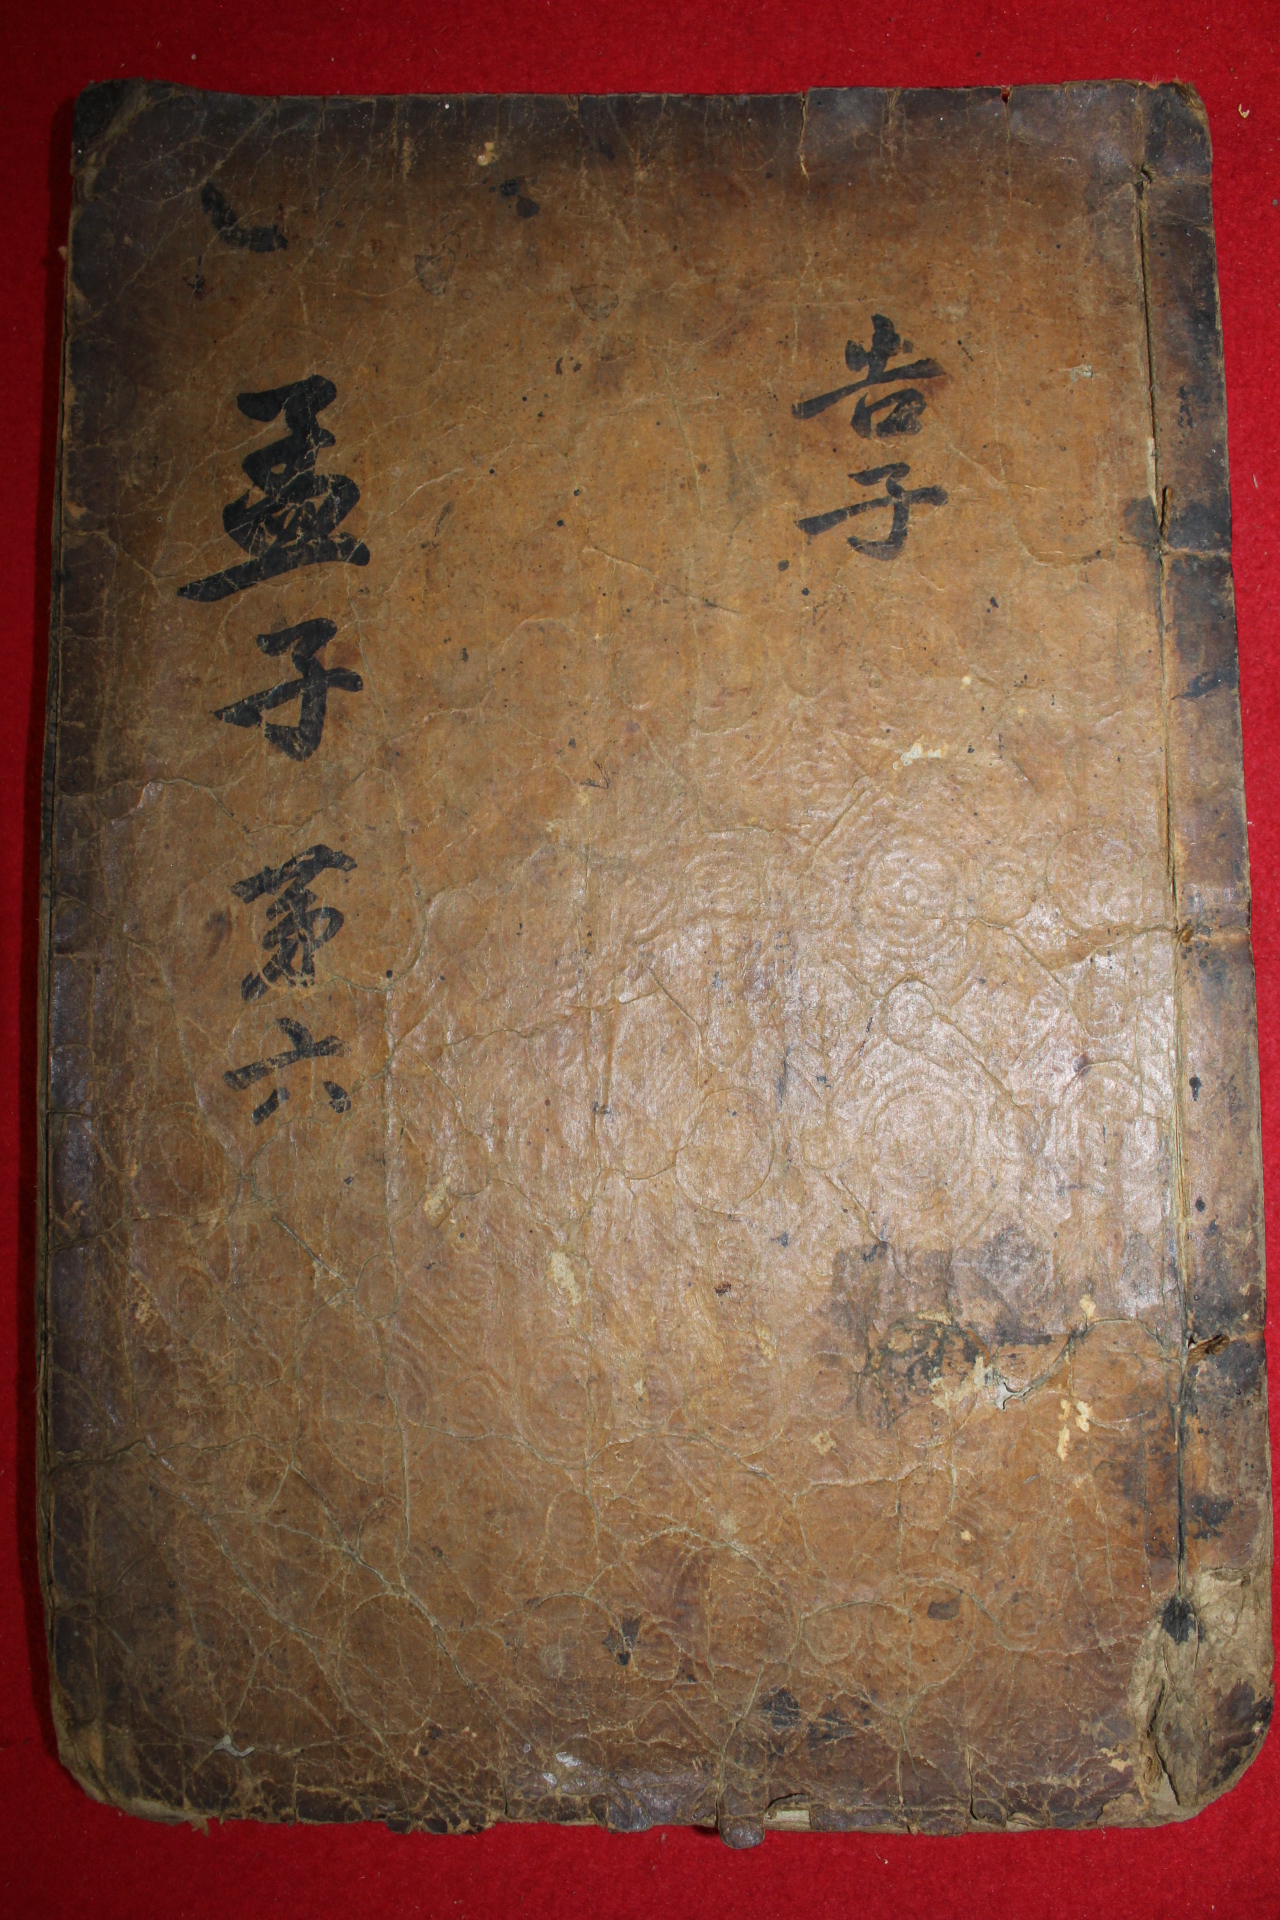 告子
孟子第六